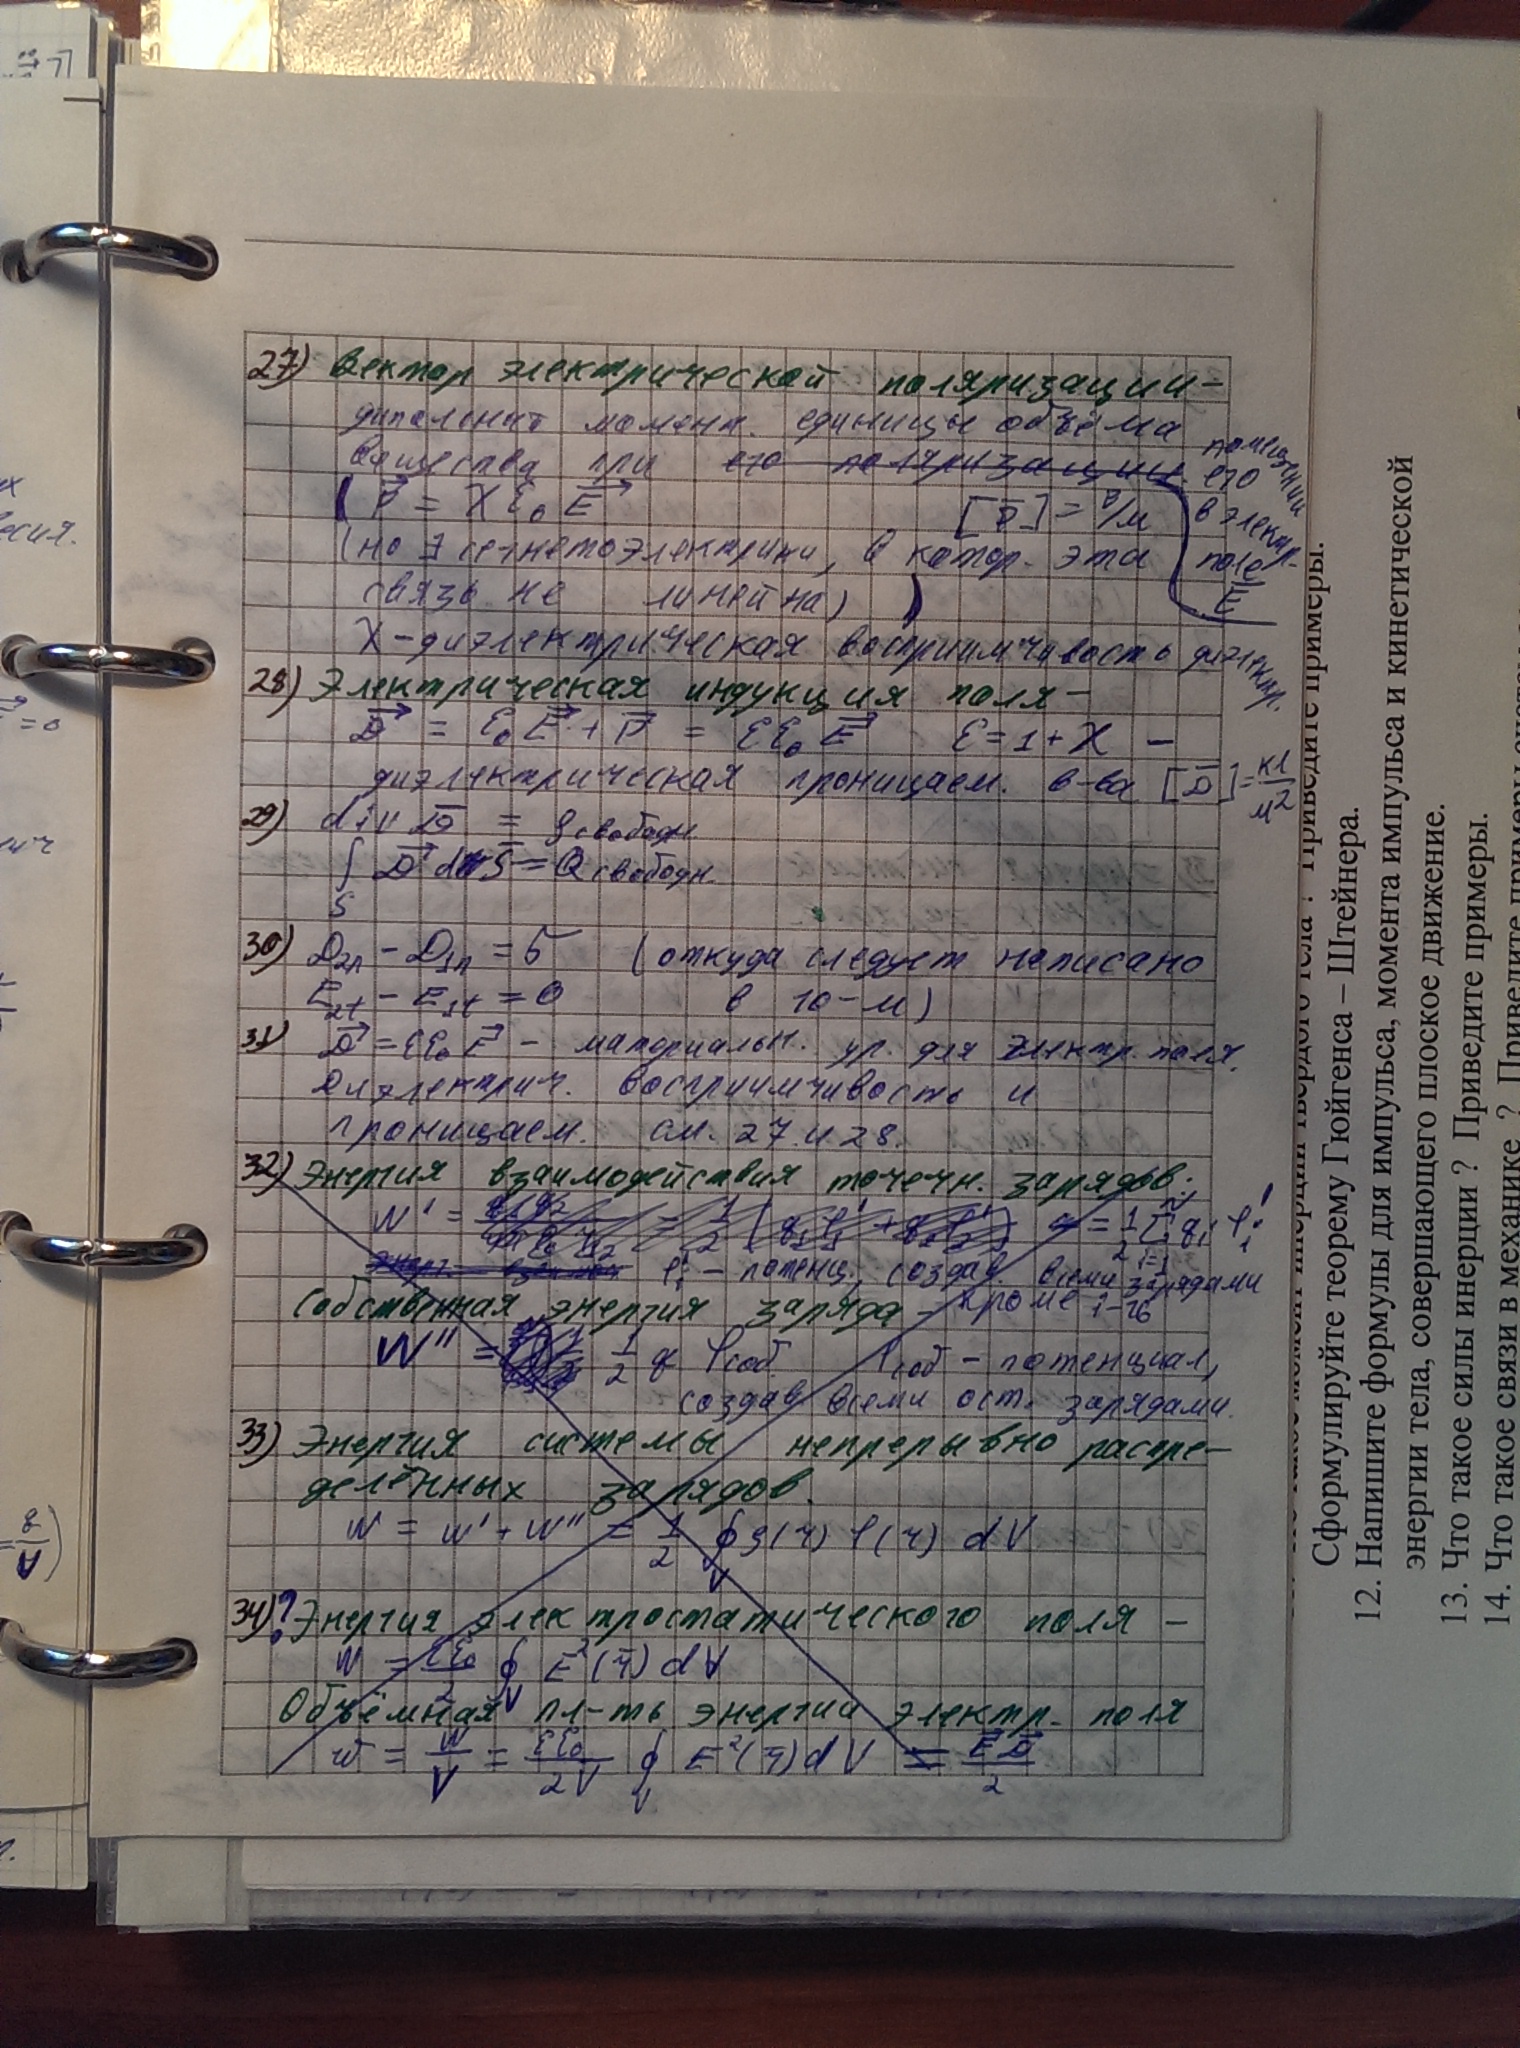 27) Вектор электрической поляризации-
дипольный момент. единицы объёма
вещества при его поляризации помещении его в электр. поле E
P = χ ε₀ E [P] = В/м
(но ∃ сегнетоэлектрики, в котор. эта
связь не линейна)
χ-диэлектрическая восприимчивость диэлектр.
28) Электрическая индукция поля-
D = ε₀ E + P = εε₀ E ε = 1 + χ -
диэлектрическая проницаем. в-ва [D] = Кл/м²
29) div D = ρ свободн
∫ D dS = Q свободн.
S
30) D₂ₙ - D₁ₙ = σ (откуда следует написано
E₂t - E₁t = 0 в 10-м)
31) D = εε₀ E - материальн. ур. для электр. поля.
Диэлектрич. восприимчивость и
проницаем. см. 27 и 28.
32) Энергия взаимодействия точечн. зарядов:
W' = = 1/2 Σ qᵢ φᵢ'
φᵢ' - потенц, создав. всеми зарядами
кроме i-го
Собственная энергия заряда -
W'' = 1/2 q φсоб. φсоб - потенциал,
создав всеми ост. зарядами.
33) Энергия системы непрерывно распре-
делённых зарядов.
W = W' + W'' = 1/2 ∮ ρ(r) φ(r) dV
V
34)? Энергия электростатического поля -
W = εε₀/2 ∮ E²(r) dV
V
Объёмная пл-ть энергии электр. поля
w = W/V = εε₀/2V ∮ E²(r) dV = ED/2
V
Сформулируйте теорему Гюйгенса – Штейнера.
12. Напишите формулы для импульса, момента импульса и кинетической
энергии тела, совершающего плоское движение.
13. Что такое силы инерции ? Приведите примеры.
14. Что такое связи в механике ? Приведите примеры